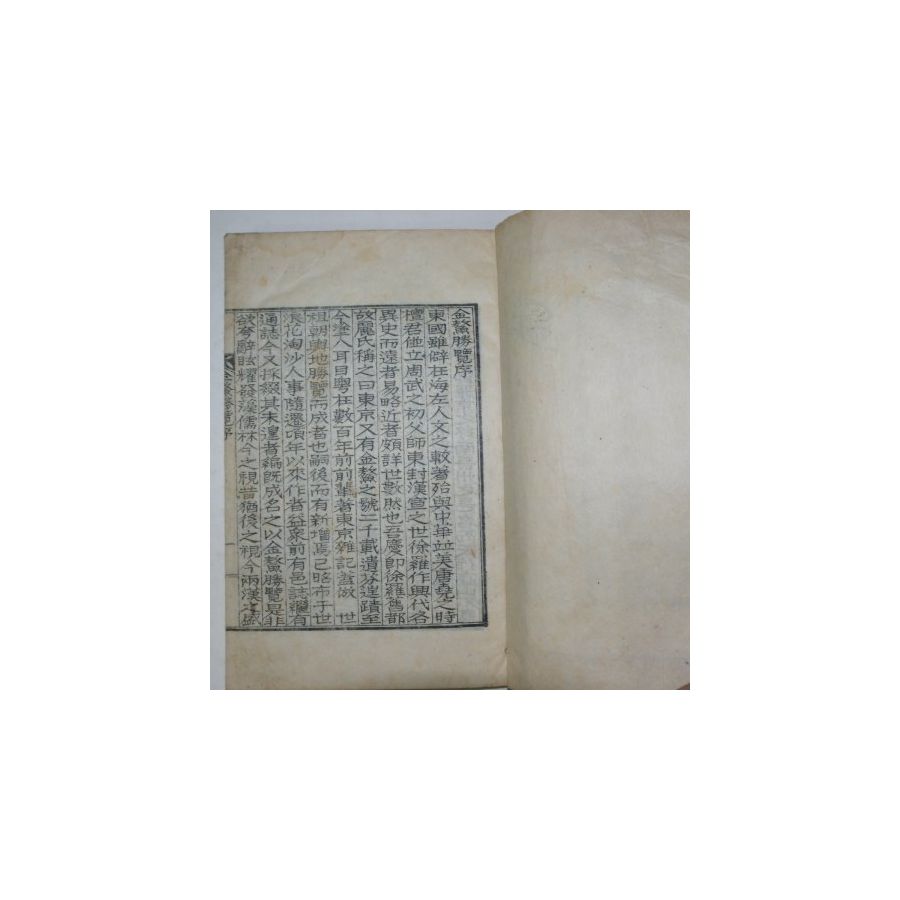 金鰲勝覽序
東國雖僻在海左人文之較著殆與中華竝美唐堯之時
檀君俶立周武之初父師東封漢宣之世徐羅作興代各
異史而遠者易略近者頗詳世數然也吾慶卽徐羅舊都
故麗氏稱之曰東京又有金鰲之號二千載遺芬往蹟至
今塗人耳目粤在數百年前前輩著東京雜記蓋倣 世
祖朝輿地勝覽而成者也嗣後而有新增焉已昭布于世
浪花淘沙人事隨遷頃年以來作者益衆前有邑誌繼有
通誌今又採綴其未遑者編旣成名之以金鰲勝覽是非
辭眩耀 儒林今之視昔猶後之視今兩漢之盛
金鰲勝覽序
一